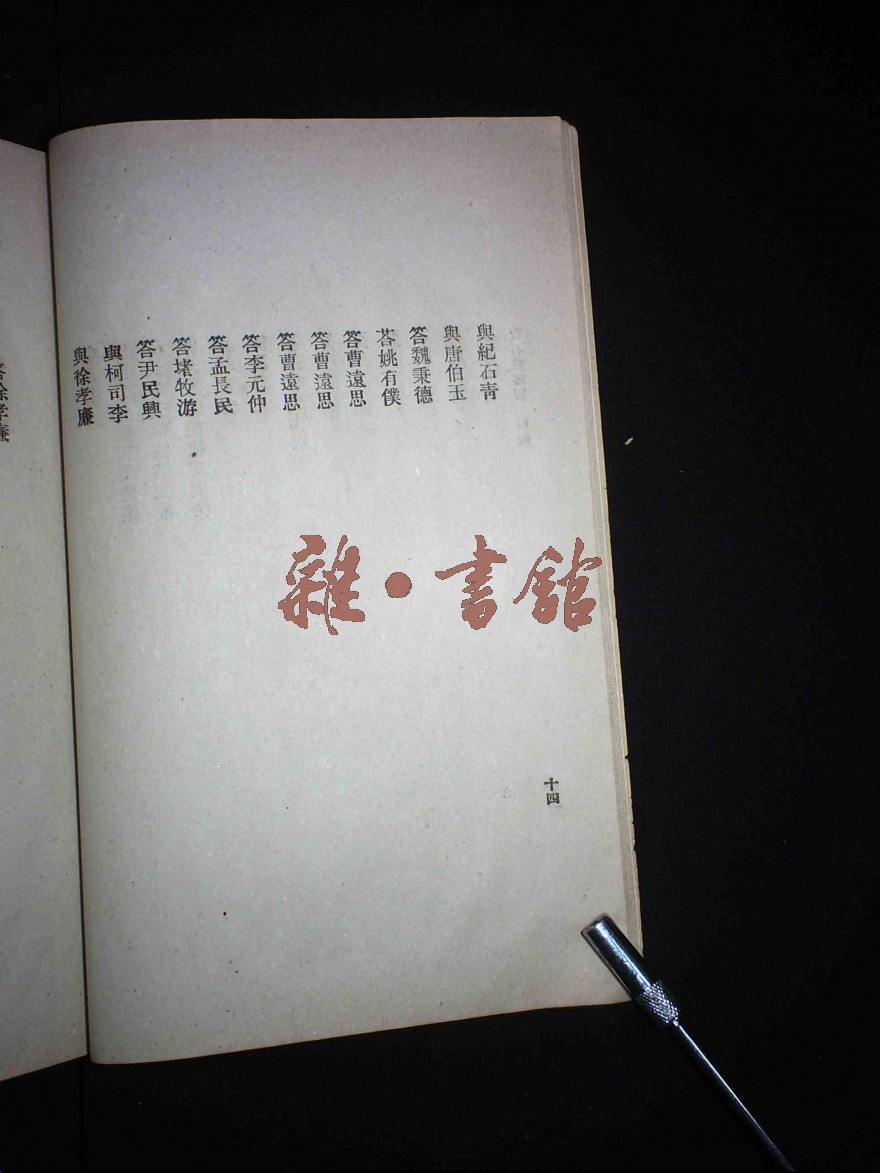 與紀石青
與唐伯玉
答魏秉德
荅姚有僕
答曹遠思
答曹遠思
答曹遠思
答李元仲
答孟長民
答堵牧游
答尹民興
與柯司李
與徐孝廉
答徐孝廉
十四
雜·書館